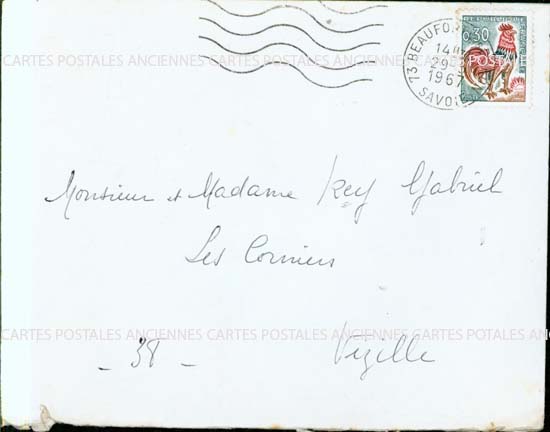 73 BEAUFO
14H
29
1967
SAVOIE
0,30
CARTES POSTALES ANCIENNES CARTES POSTALES ANCIENNES CARTES POSTALES ANCIENNES
Monsieur et Madame Rey Gabriel
Les Corniers
CARTES POSTALES ANCIENNES CARTES POSTALES ANCIENNES CARTES POTALES ANCIENNES
- 38 - Vizille